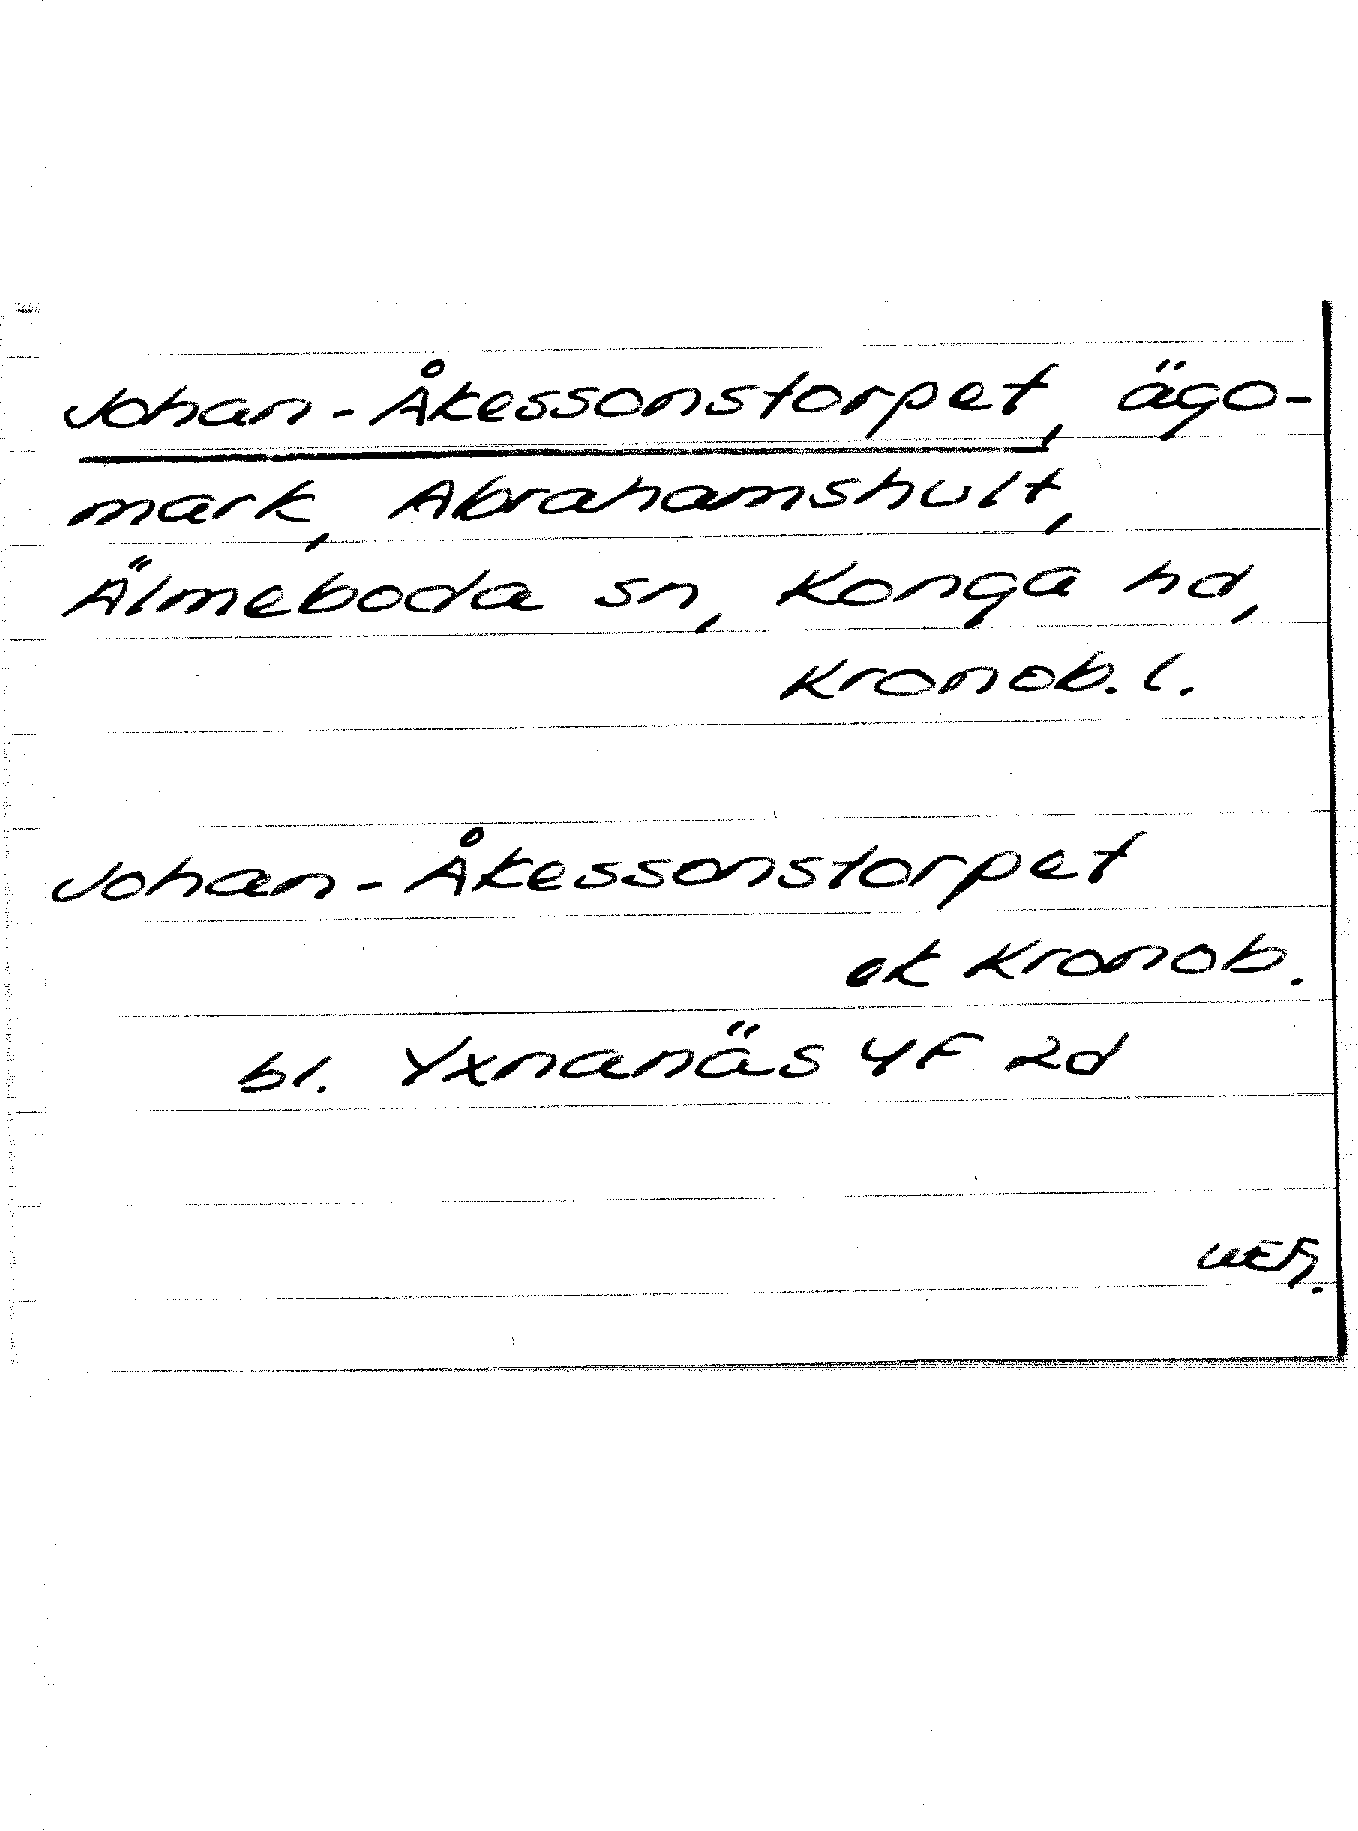 Johan-Åkessonstorpet, ägo-
mark, Abrahamshult,
Älmeboda sn, Konga hd,
Kronob. l.
Johan-Åkessonstorpet
ek Kronob.
bl. Yxnanäs 4F 2d